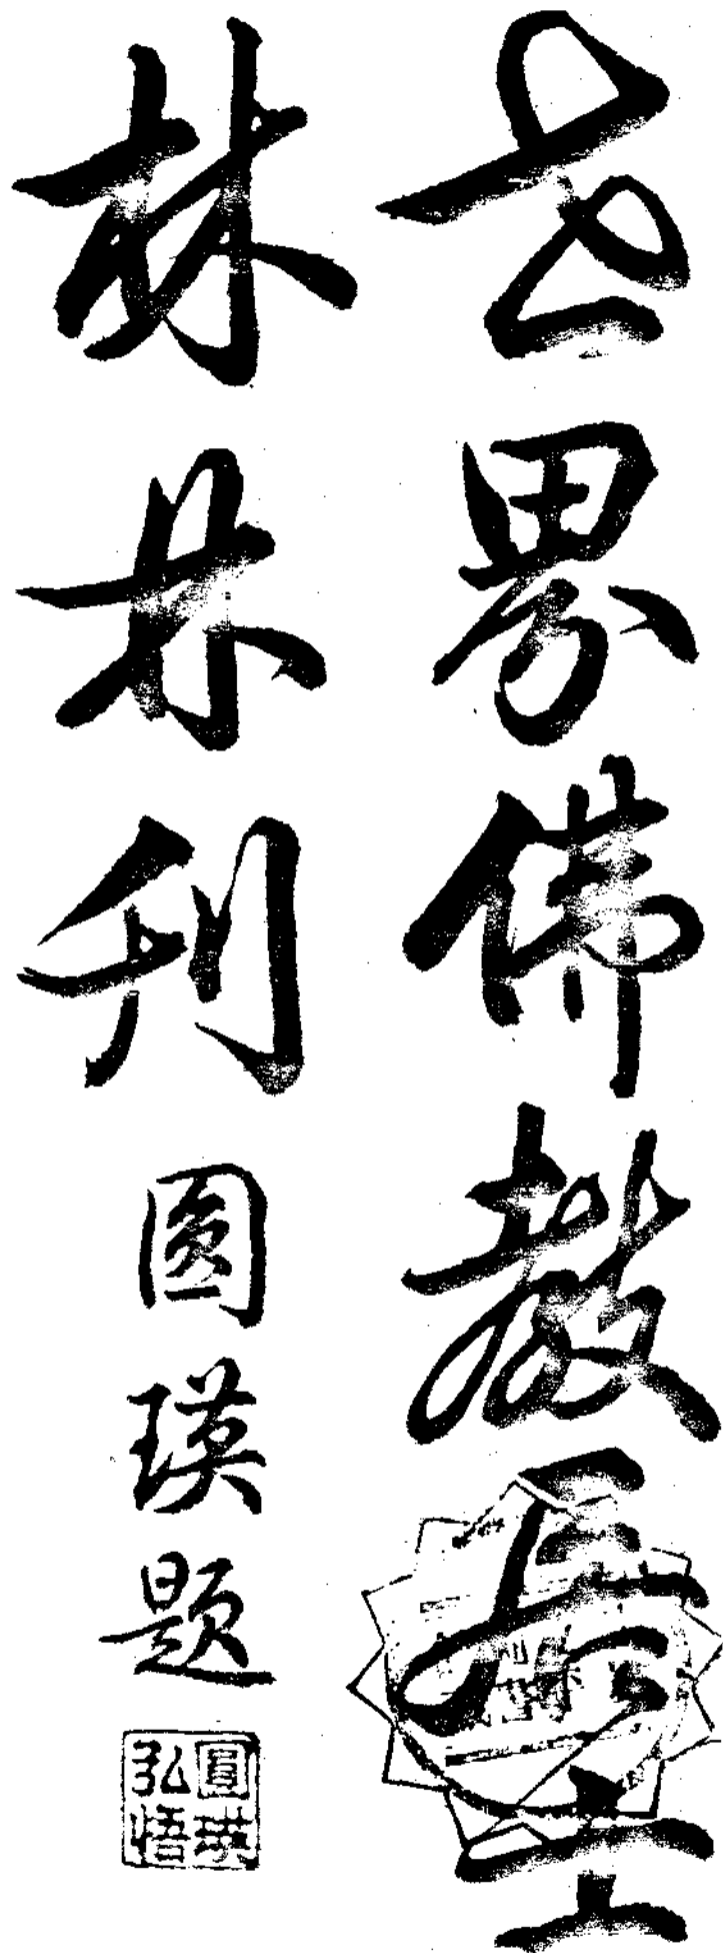 世界佛教居士
林林刊
圓瑛題
圓瑛
弘悟